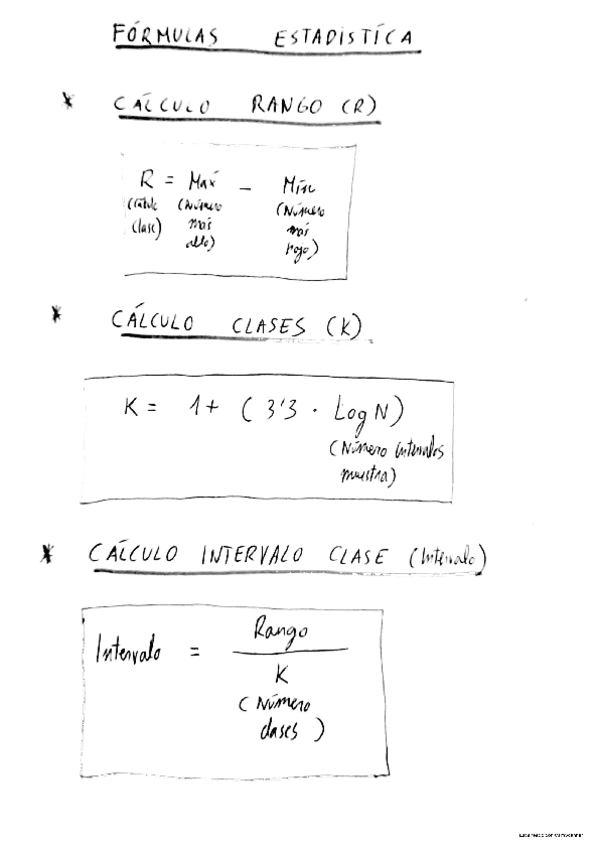 FÓRMULAS ESTADISTÍCA
* CÁLCULO RANGO (R)
R = Máx − Mín
(Número (Número
clase) más más
alto) bajo)
* CÁLCULO CLASES (K)
K = 1+ (3'3 · Log N)
(Número intervalos
muestra)
* CÁLCULO INTERVALO CLASE (Intervalo)
Intervalo = Rango
K
(Número
clases)